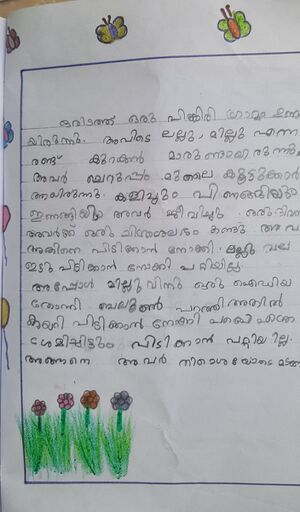 ഒരിടത്ത് ഒരു പിങ്കിരി ഗ്രാമം ഉണ്ടാ
യിരുന്നു. അവിടെ ലല്ലു, മില്ലു എന്ന
രണ്ട് കുറുക്കൻ മാരുണ്ടായിരുന്നു
അവർ ചെറുപ്പം മുതലേ കൂട്ടുക്കാർ
ആയിരുന്നു. കളിച്ചും പിണങ്ങിയും
ഇണങ്ങിയും അവർ ജീവിച്ചു. ഒരു ദിവ
അവർ ഒരു ചിത്രശലഭം കണ്ടു. അവ
അതിനെ പിടിക്കാൻ നോക്കി. ലല്ലു വല
ഇട്ടു പിടിക്കാൻ നോക്കി പറ്റിയില്ല.
അപ്പോൾ മില്ലുവിനു ഒരു ഐഡിയ
തോന്നി ബലൂൺ പറത്തി അതിൽ
കയറി പിടിക്കാൻ നോക്കി പക്ഷെ എത്ര
ശ്രമിച്ചിട്ടും പിടിക്കാൻ പറ്റിയില്ല.
അങ്ങനെ അവർ നിരാശയോടെ മടങ്ങ